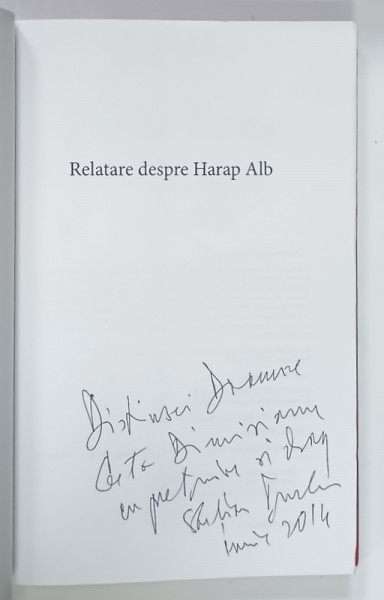 Relatare despre Harap Alb
Distinsei Doamne
Geta Dimisianu
cu prețuire și drag
Ștefan
iunie 2014